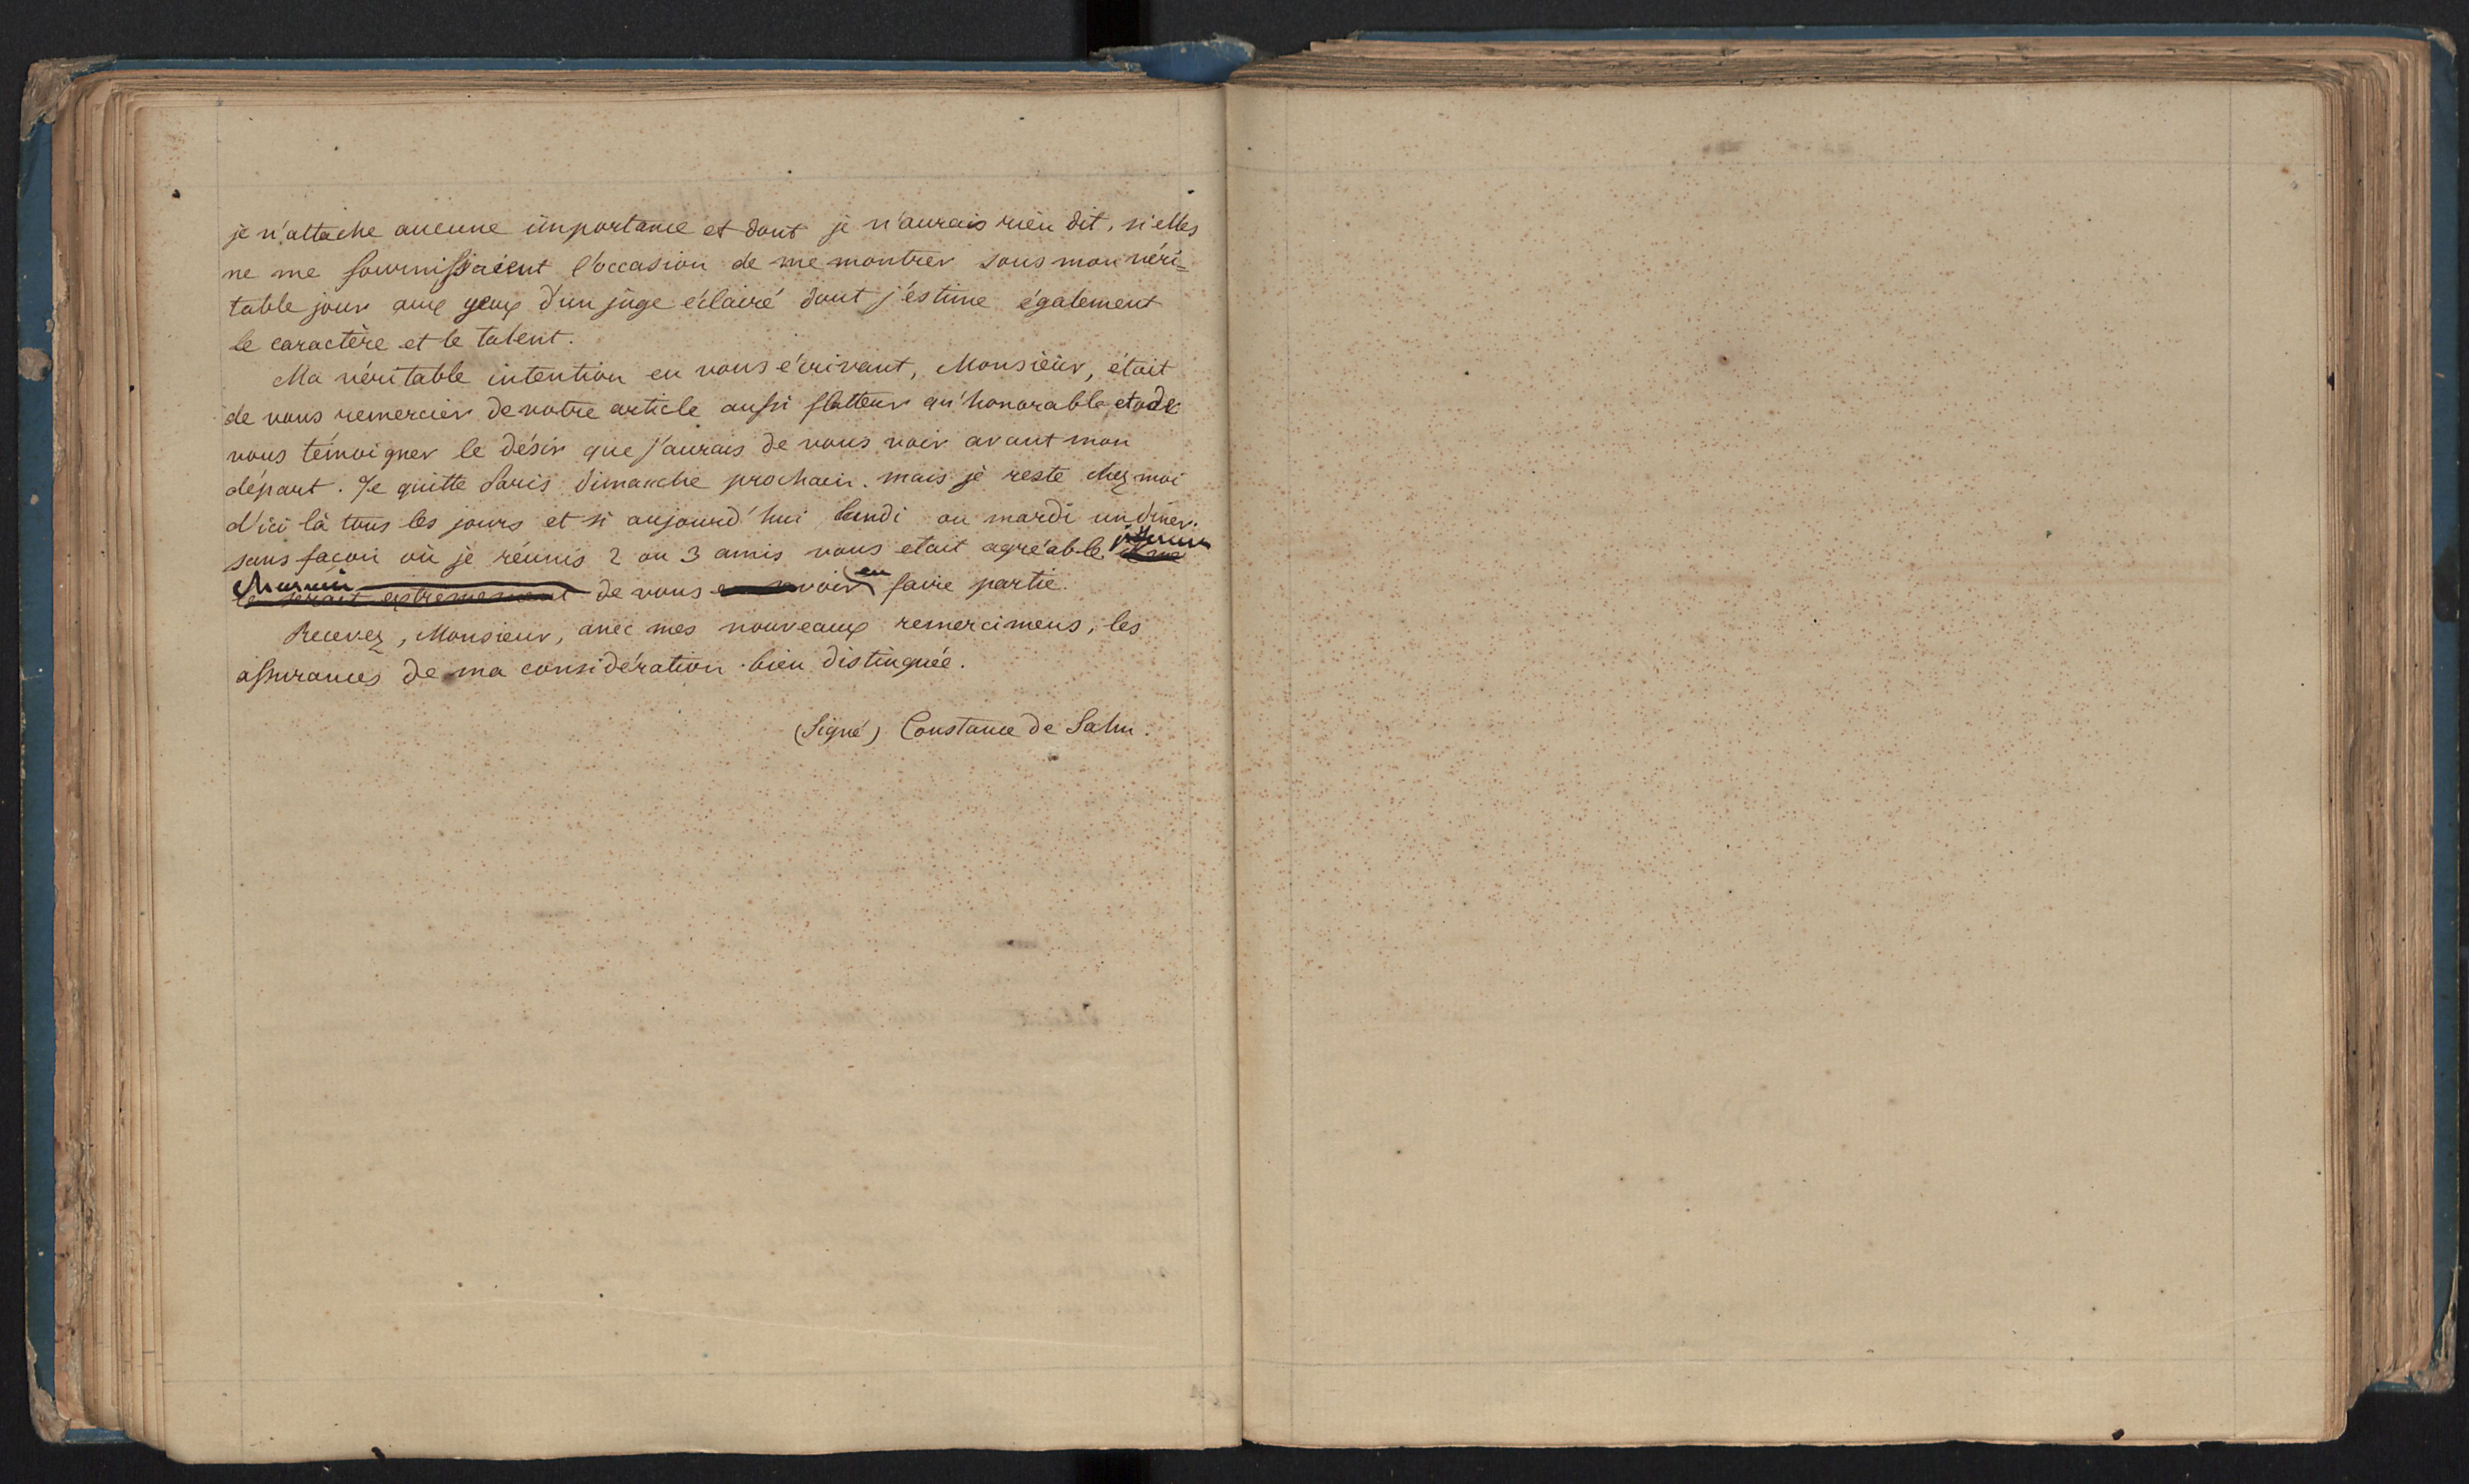 je n'attache aucune importance et dont je n'aurais rien dit, si elles
ne me fournissaient l'occasion de me montrer sous mon véri=
table jour aux yeux d'un juge éclairé dont j'estime également
le caractère et le talent.
Ma véritable intention en vous écrivant, Monsieur, était
de vous remercier de votre article aussi flatteur qu'honorable et de
vous témoigner le désir que j'aurais de vous voir avant mon
départ. Je quitte Paris dimanche prochain. mais je reste chez moi
d'ici là tous les jours et si aujourd'hui lundi ou mardi un dîner.
sans façon où je réunis 2 ou 3 amis vous était agréable
le serait extrêmement de vous voir en faire partie.
Recevez, Monsieur, avec mes nouveaux remercimens, les
assurances de ma considération bien distinguée.
(Signé) Constance de Salm.